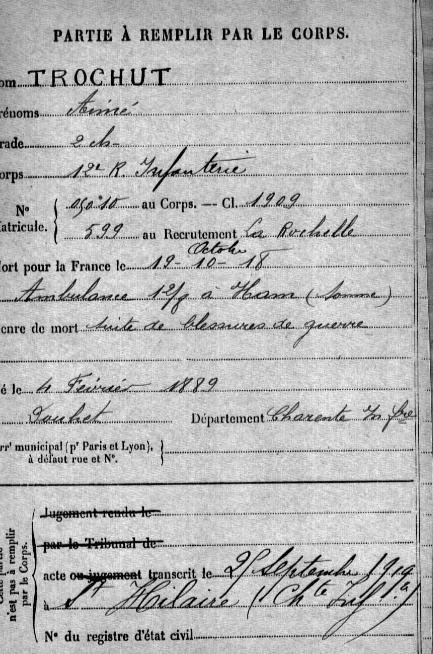 PARTIE À REMPLIR PAR LE CORPS.
om TROCHUT
rénoms Aimé
rade 2 ch
orps 12e R Infanterie
N° atricule. { 05010 au Corps. — Cl. 1909
599 au Recrutement La Rochelle
Octobre
ort pour la France le 19-10-18
Ambulance 12/8 à Ham (Somme)
enre de mort suite de blessures de guerre
é le 4 Février 1889
Département Charente Infre
rrt municipal (pr Paris et Lyon),
à défaut rue et N°.
Jugement rendu le
par le Tribunal de
acte ou jugement transcrit le 25 Septembre 1919
à St Hilaire (Chte Infra)
N° du registre d'état civil
n'est pas à remplir
par le Corps.